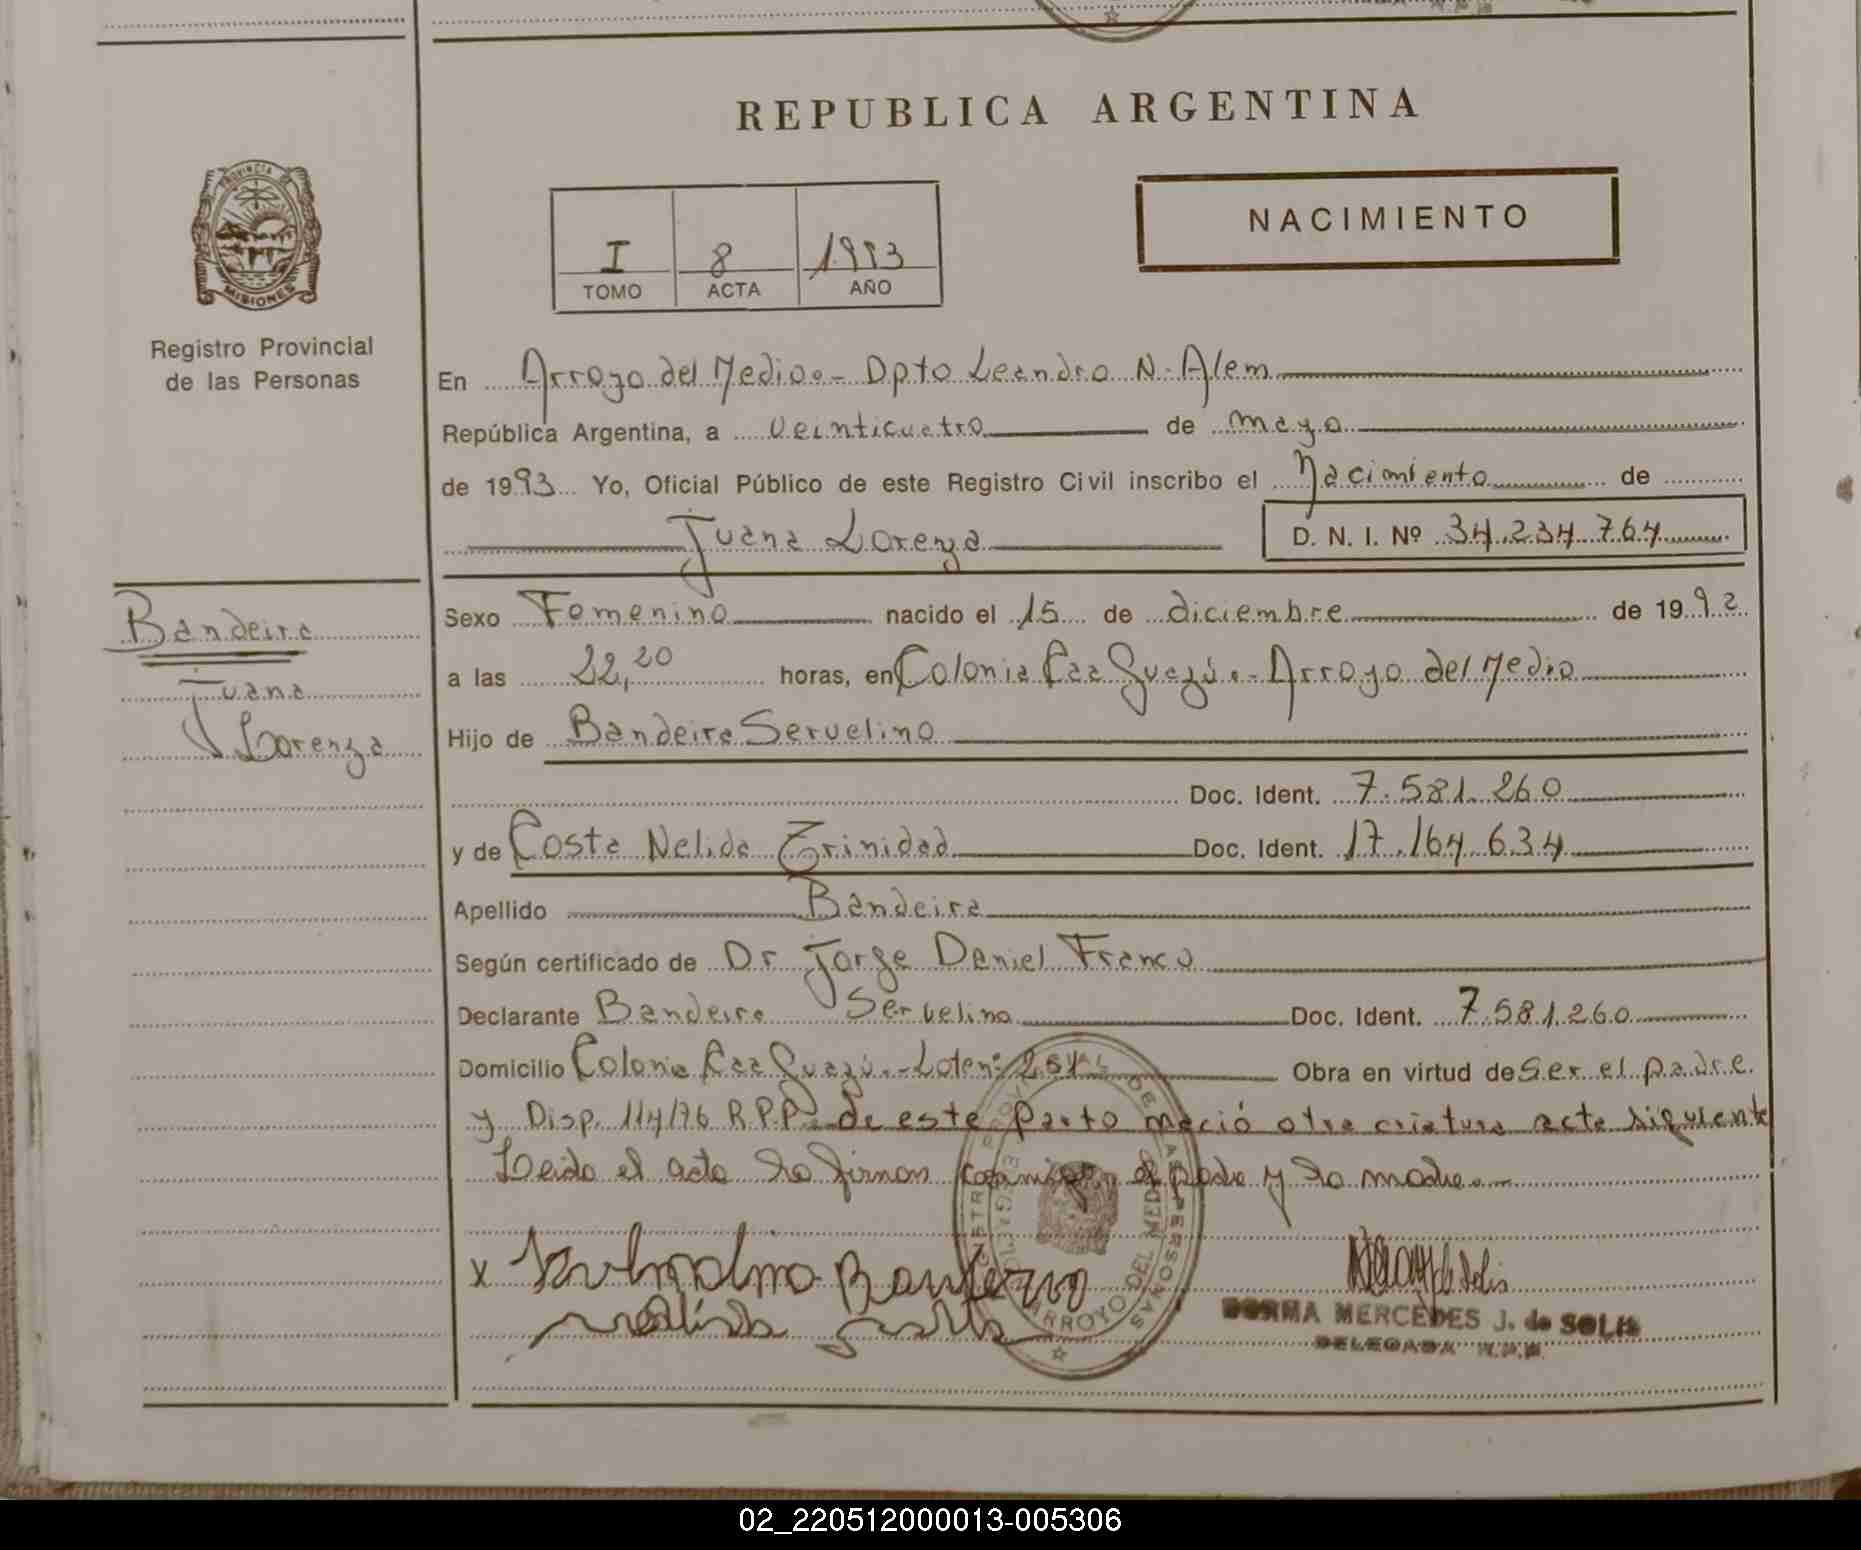 REPUBLICA ARGENTINA
PROVINCIA DE
MISIONES
Registro Provincial
de las Personas
I 8 1993
TOMO ACTA AÑO
NACIMIENTO
En Arroyo del Medio.- Dpto Leandro N. Alem
República Argentina, a veinticuatro de mayo
de 1993 Yo, Oficial Público de este Registro Civil inscribo el Nacimiento de
Juana Lorenza D. N. I. Nº 34.234.764
Bandeira
Juana
Lorenza
Sexo Femenino nacido el 15 de diciembre de 1992
a las 22,20 horas, en Colonia Caa Guazú.- Arroyo del Medio
Hijo de Bandeira Servelino
Doc. Ident. 7.581.260
y de Costa Nelida Trinidad Doc. Ident. 17.164.634
Apellido Bandeira
Según certificado de Dr Jorge Daniel Franco
Declarante Bandeira Servelino Doc. Ident. 7.581.260
Domicilio Colonia Caa Guazú.- Lote nº 251 Obra en virtud de Ser el padre
y Disp. 114/76 R.P.P. de este parto nació otra criatura acta siguiente
Leida el acta la firman conmigo, el padre y la madre.-
x Bandeira
DE LAS PERSONAS
ARROYO DEL MEDIO
NORMA MERCEDES J. de SOLIS
DELEGADA R.P.P.
02_220512000013-005306